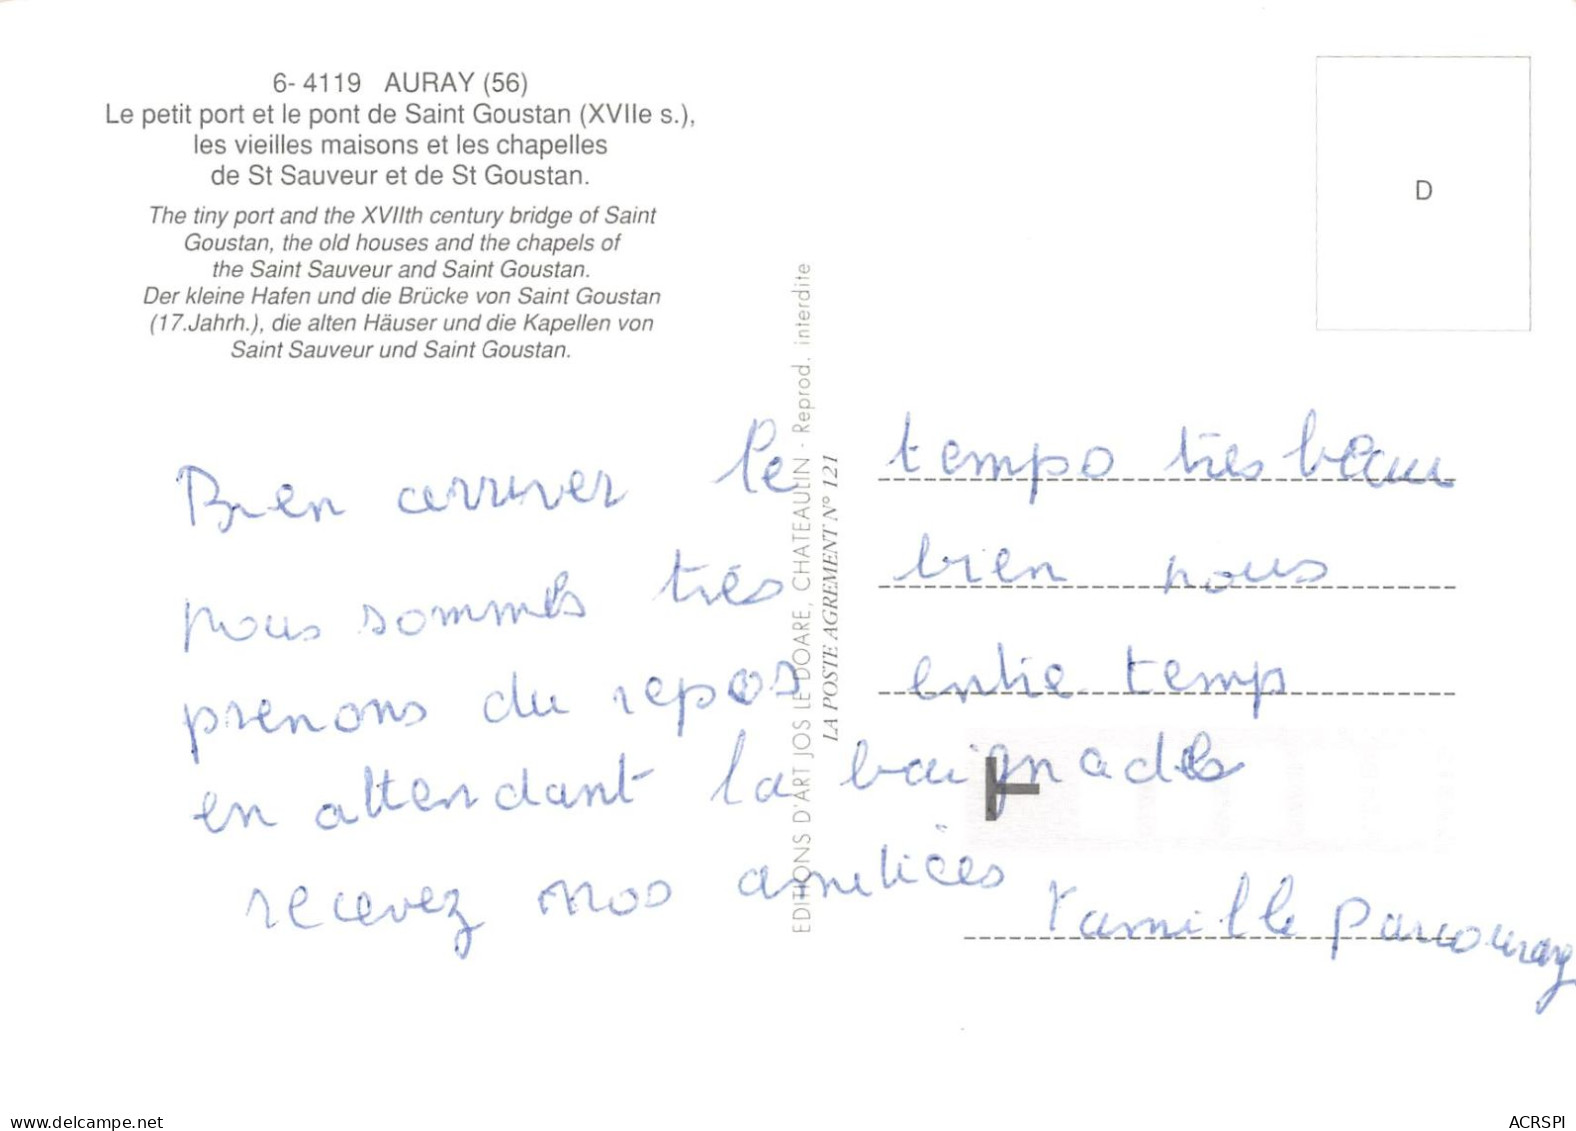 6- 4119 AURAY (56)
Le petit port et le pont de Saint Goustan (XVIIe s.),
les vieilles maisons et les chapelles
de St Sauveur et de St Goustan.
The tiny port and the XVIIth century bridge of Saint
Goustan, the old houses and the chapels of
the Saint Sauveur and Saint Goustan.
Der kleine Hafen und die Brücke von Saint Goustan
(17.Jahrh.), die alten Häuser und die Kapellen von
Saint Sauveur und Saint Goustan.
D
EDITIONS D'ART JOS LE DOARE, CHATEAULIN - Reprod. interdite
LA POSTE AGREMENT N° 121
Bien arriver le temps très beau
nous sommes très bien nous
prenons du repos entre temp
en attendant la baignades
T
recevez nos amitiées
Famille Parcouray
www.delcampe.net
ACRSPI